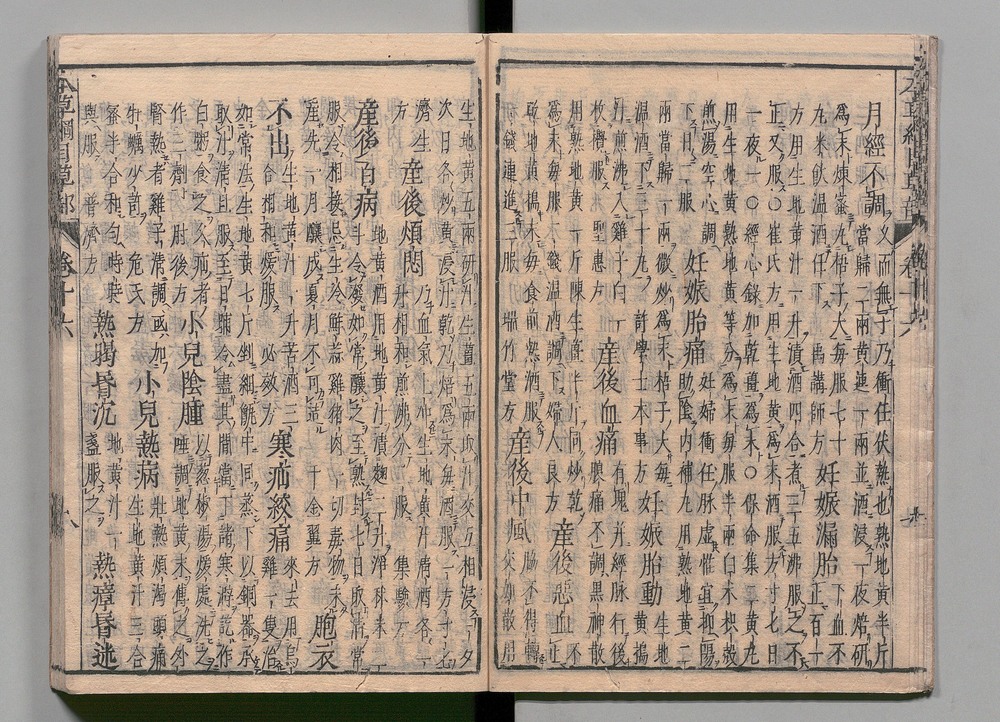 月經不調久而無子乃衝任伏熱也熟地黃半斤
當歸二兩黃連一兩並酒浸一夜焙研
爲末煉蜜丸梧子大每服七十
丸米飲温酒任下 禹講師方 妊娠漏胎下血不止百一
方用生地黃汁一升漬酒四合煮三五沸服之不
止又服○崔氏方用生地黃爲末酒服方寸匕日
一夜一○經心録加乾薑爲末○保命集二黃丸
用生地黃熟地黃等分爲末每服半兩白朮枳殻
煎湯空心調
下日二服 妊娠胎痛妊婦衝任脉虛惟宜抑陽
助陰内補丸用熟地黃二
兩當歸一兩微炒爲末丸梧子大每
温酒下三十丸 許學士本事方 妊娠胎動生地黃搗
汁煎沸入雞子白一
枚攪服 聖惠方 産後血痛有塊并經脉行後
腹痛不調黒神散
用熟地黃一斤陳生薑半斤同炒乾
爲末每服二錢温酒調下 婦人良方 産後惡血不止
乾地黃搗末每食前熱酒服
一錢連進三服 瑞竹堂方 産後中風脇不得轉
交加散用
生地黃五兩研汁生薑五兩取汁交互相浸一夕
次日各炒黃浸汁乾乃焙爲末每酒服一方寸匕
濟生方 産後煩悶乃血氣上冲生地黃汁清酒各一
升相和煎沸分二服 集驗方
産後百病地黃酒用地黃汁漬麴二升淨秫米二
斗令發如常釀之至熟封七日取清常
服令相接忌生冷鮓蒜雞猪肉一切毒物未
産先一月釀成夏月不可造 千金翼方 胞衣
不出生地黃汁一升苦酒三
合相和煖服 必效方 寒疝絞痛來去用烏
雞一隻治
如常法生地黃七斤剉細甑中同蒸下以銅器承
取汁清旦服至日晡令盡其間當下諸寒澼訖作
白粥食之久疝者
作三劑 肘後方 小兒陰腫以葱椒湯煖處洗之
唾調地黃末傅之外
腎熱者雞子清調或加
牡蠣少許 危氏方 小兒熱病壯熱煩渴頭痛
生地黃汁三合
蜜半合和匀時時
與服 普濟方 熱暍昏沉地黃汁一
盞服之 熱瘴昏迷
本草綱目草部 卷十六 八